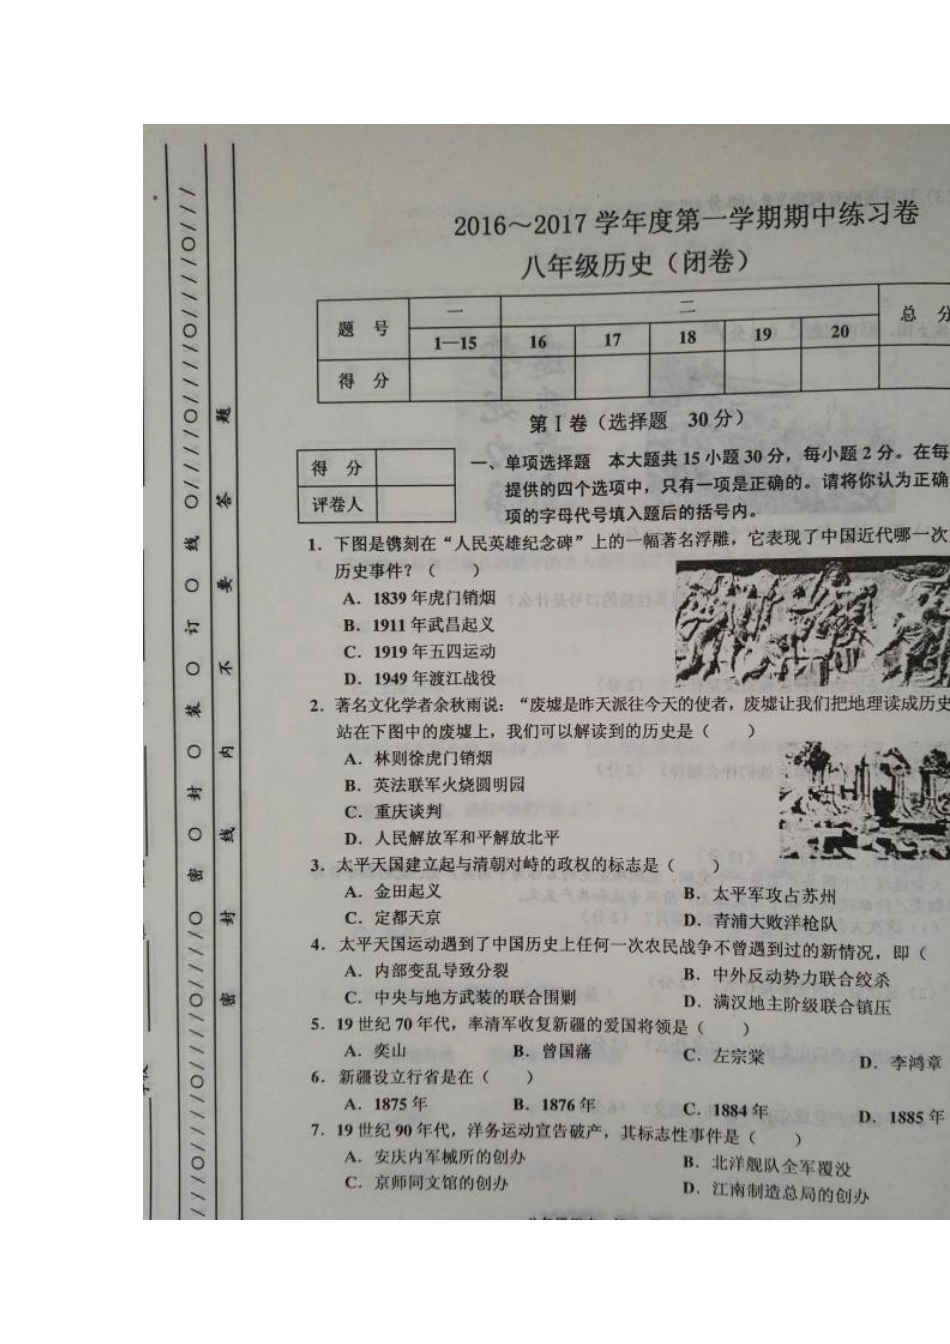 2016～2017 学年度第一学期期中练习卷
八年级历史（闭卷）
题 号 一 二 总 分
1—15 16 17 18 19 20
得 分
第 I 卷（选择题 30 分）
得 分
评卷人
一、单项选择题 本大题共 15 小题 30 分，每小题 2 分。在每
提供的四个选项中，只有一项是正确的。请将你认为正确
项的字母代号填入题后的括号内。
1．下图是镌刻在“人民英雄纪念碑”上的一幅著名浮雕，它表现了中国近代哪一次
历史事件？（ ）
A．1839 年虎门销烟
B．1911 年武昌起义
C．1919 年五四运动
D．1949 年渡江战役
2．著名文化学者余秋雨说：“废墟是昨天派往今天的使者，废墟让我们把地理读成历史
站在下图中的废墟上，我们可以解读到的历史是（ ）
A．林则徐虎门销烟
B．英法联军火烧圆明园
C．重庆谈判
D．人民解放军和平解放北平
3．太平天国建立起与清朝对峙的政权的标志是（ ）
A．金田起义 B．太平军攻占苏州
C．定都天京 D．青浦大败洋枪队
4．太平天国运动遇到了中国历史上任何一次农民战争不曾遇到过的新情况，即（
A．内部变乱导致分裂 B．中外反动势力联合绞杀
C．中央与地方武装的联合围剿 D．满汉地主阶级联合镇压
5．19 世纪 70 年代，率清军收复新疆的爱国将领是（ ）
A．奕山 B．曾国藩 C．左宗棠 D．李鸿章
6．新疆设立行省是在（ ）
A．1875 年 B．1876 年 C．1884 年 D．1885 年
7．19 世纪 90 年代，洋务运动宣告破产，其标志性事件是（ ）
A．安庆内军械所的创办 B．北洋舰队全军覆没
C．京师同文馆的创办 D．江南制造总局的创办
密 封 线 内 不 要 答 题
密 O 封 O 装 O 订 O 线